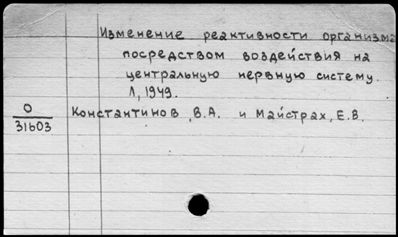 Изменение реактивности организма
посредством воздействия на
центральную нервную систему.
Л, 1949.
О
31603
Константинов, В.А. и Майстрах, Е.В.